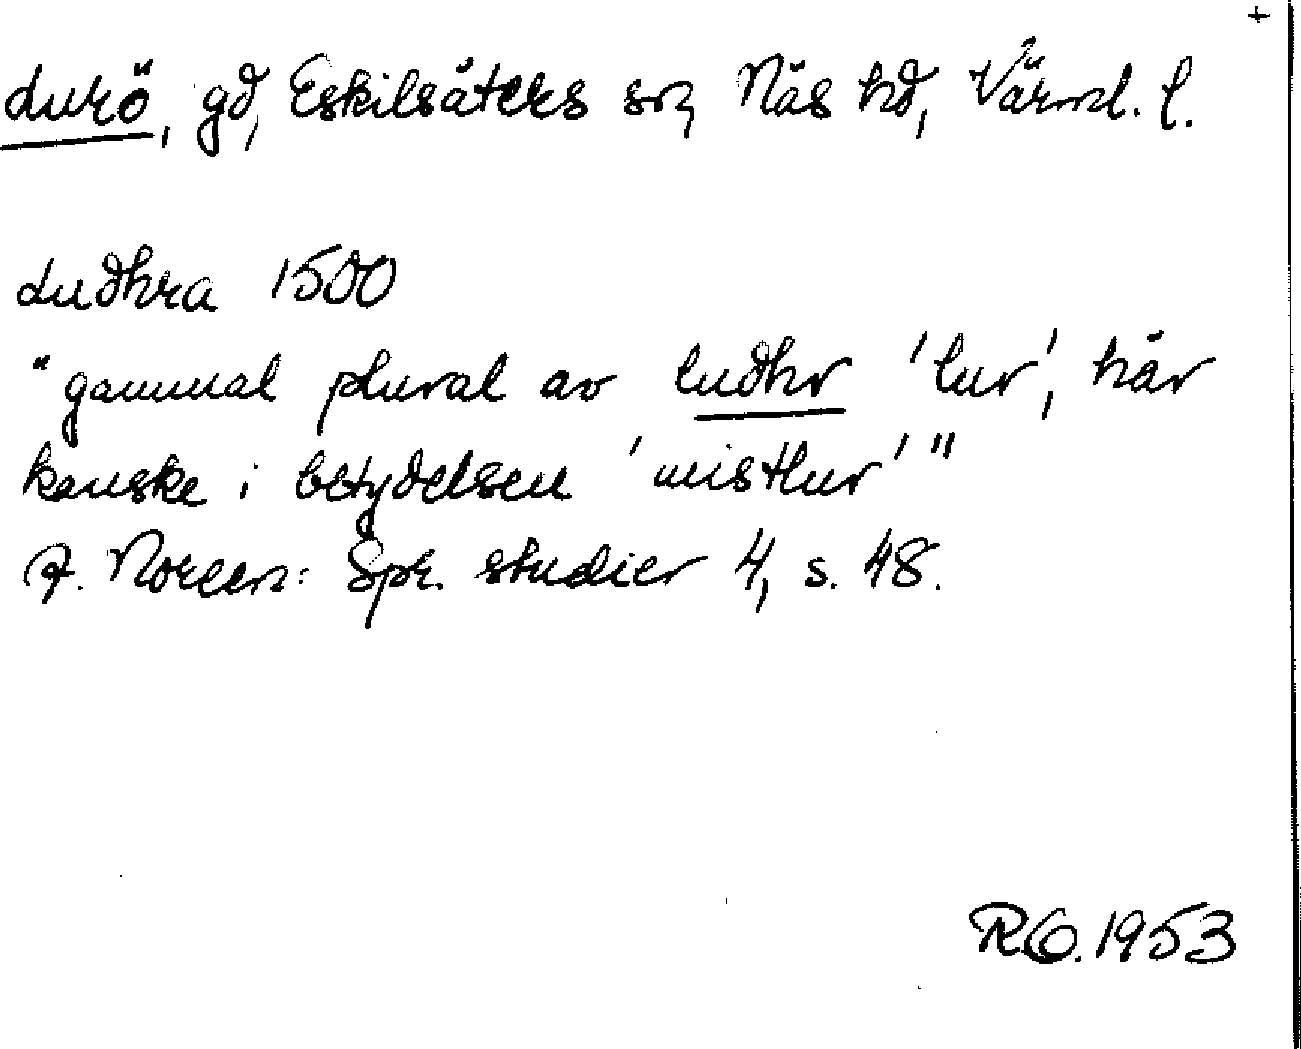 +
Lurö, gd, Eskilsäters sn, Näs hd, Värml. l.
Ludhra 1500
"gammal plural av ludhr 'lur', här
kanske i betydelsen 'mistlur'"
A. Noreen: Spr. studier 4, s. 48.
RO. 1953